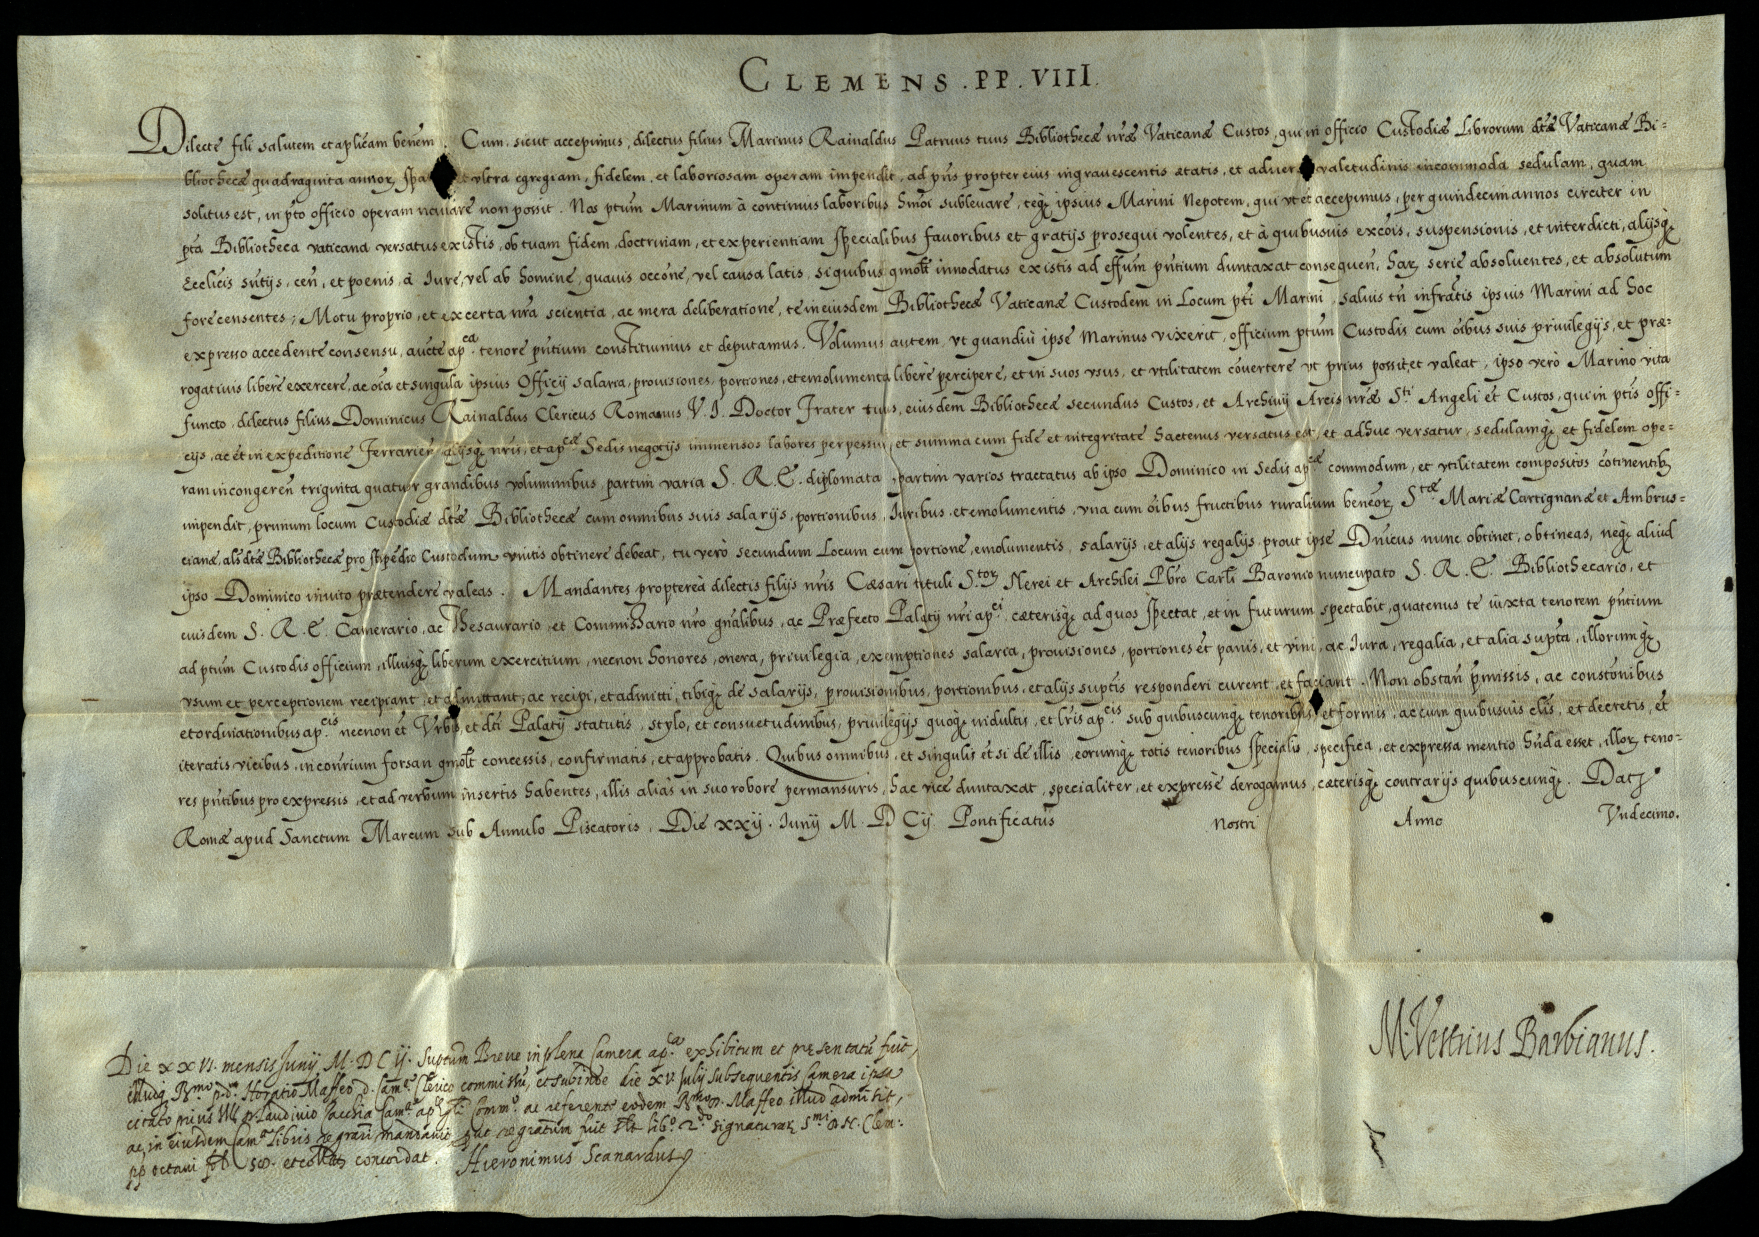 CLEMENS . PP . VIII .
Dilecte fili salutem et aplicam benem . Cum . sicut accepimus , dilectus filius Marinus Rainaldus Patruus tuus Bibliothecæ nræ Vaticanæ Custos , qui in officio Custodiæ Librorum dtæ Vaticanæ Bi-
bliothecæ quadraginta annor, spa et vltra egregiam , fidelem , et laboriosam operam impendit , ad pns propter eius ingravescentis ætatis , et advers valetudinis incommoda sedulam , quam
solitus est , in pto officio operam navare non possit . Nos ptum Marinum à continuis laboribus hmoi sublevare , teq; ipsius Marini Nepotem , qui vt et accepimus , per quindecim annos circiter in
pta Bibliotheca vaticana versatus existis , ob tuam fidem , doctrinam , et experientiam specialibus favoribus et gratijs prosequi volentes , et à quibusuis excois , suspensionis , et interdicti , alijsq;
Ecclicis sntijs , cen , et poenis , à Iure , vel ab homine , quauis occone , vel causa latis , si quibus qmolt innodatus existis ad effum pntium duntaxat consequen , har serie absoluentes , et absolutum
fore censentes ; Motu proprio , et ex certa nra scientia , ac mera deliberatione , te in eiusdem Bibliothecæ Vaticanæ Custodem in Locum pti Marini , saluis tn infratis ipsius Marini ad hoc
expresso accedente consensu , aucte apca tenore pntium constituimus et deputamus . Volumus autem , vt quandiù ipse Marinus vixerit , officium ptum Custodis cum oibus suis priuilegijs , et præ-
rogatiuis liberè exercere , ac oia et singula ipsius Officij salaria , prouisiones , portiones , et emolumenta liberè percipere , et in suos vsus , et vtilitatem couertere vt prius possit et valeat , ipso verò Marino vita
functo , dilectus filius Dominicus Rainaldus Clericus Romanus V . I . Doctor Frater tuus , eiusdem Bibliothecæ secundus Custos , et Archiuij Arcis nræ Sti Angeli et Custos , qui in ptis offi-
cijs , ac et in expeditione Ferrarien alijsq; nris , et apcæ Sedis negocijs immensos labores perpessus , et summa cum fide et integritate hactenus versatus est , et adhuc versatur , sedulamq; et fidelem ope-
ram in congeren triginta quatuor grandibus voluminibus , partim varia S . R . E . diplomata , partim varios tractatus ab ipso Dominico in Sedis apcæ commodum , et vtilitatem compositos cotinentib;
impendit , primum locum Custodiæ dtæ Bibliothecæ cum omnibus suis salarijs , portionibus , Iuribus , et emolumentis , vna cum oibus fructibus ruralium beneor; Stæ Mariæ Cartignanæ et Ambrus-
cianæ , als dtæ Bibliothecæ pro stipedio Custodum vnitis obtinere debeat , tu verò secundum Locum cum portione , emolumentis , salarijs , et alijs regalijs , prout ipse Dnicus nunc obtinet , obtineas , neq; aliud
ipso Dominico inuito prætendere valeas . Mandantes proptereà dilectis filijs nris Cæsari tituli Stor; Nerei et Archilei Pbro Carli Baronio nuncupato S . R . E . Bibliothecario , et
eiusdem S . R . E . Camerario , ac Thesaurario , et Commissario nro gnalibus , ac Præfecto Palatij nri apci cæterisq; ad quos spectat , et in futurum spectabit , quatenus te iuxta tenorem pntium
ad ptum Custodis officium , illiusq; liberum exercitium , necnon honores , onera , priuilegia , exemptiones salaria , prouisiones , portiones et panis , et vini , ac Iura , regalia , et alia supta , illorumq;
vsum et perceptionem recipiant , et admittant , ac recipi , et admitti , tibiq; de salarijs , prouisionibus , portionibus , et alijs suptis responderi curent , et faciant . Non obstan pmissis , ac constonibus
et ordinationibus apcis necnon et Vrbis , et dti Palatij statutis , stylo , et consuetudinibus , priuilegijs quoq; indultis , et lris apcis sub quibuscunq; tenoribus , et formis , ac cum quibusuis clis , et decretis , et
iteratis vicibus , in conrium forsan qmolt concessis , confirmatis , et approbatis . Quibus omnibus , et singulis et si de illis , eorumq; totis tenoribus specialis , specifica , et expressa mentio hnda esset , illor; teno-
res pntibus pro expressis , et ad verbum insertis habentes , illis aliàs in suo robore permansuris , hac vice duntaxat , specialiter , et expressè derogamus , cæterisq; contrarijs quibuscunq; . Dat;
Romæ apud Sanctum Marcum sub Annulo Piscatoris . Die xxij . Iunij M . D C ij . Pontificatus nostri Anno Vndecimo .
M. Vestrius Barbianus .
Die XXVI . mensis Junij M . D C ij . Suptum Breue in plena Camera apca exhibitum et pręsentatu fuit ,
illudq; Rmo p. d. Horatio Maffeo d. Camę Clerico commissu , et subinde die XV Julij subsequentis Camera ipsa
citato prius Laudiuio Zacchia Camę apcę Commo ac referente eodem Rmo Maffeo illud admisit ,
ac in eiusdem Camę libris regrari mandauit , put regratum fuit libo 2do signaturar; Smi D. N. Clem :
pp octaui fol et concordat . Hieronimus Scanardus